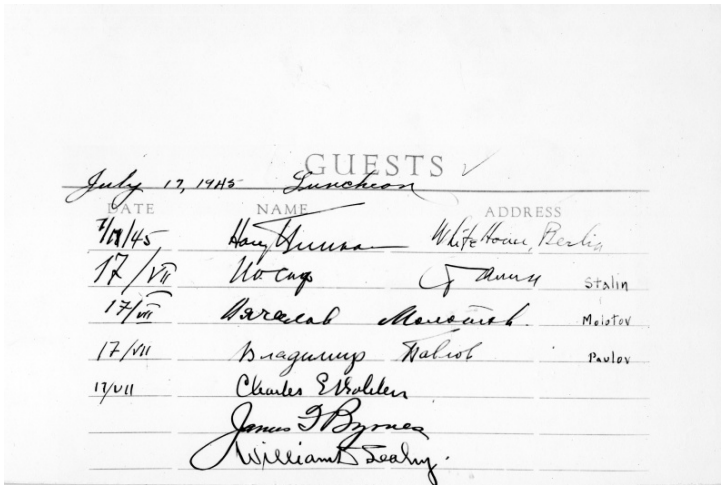 GUESTS
July 17, 1945 Luncheon
DATE NAME ADDRESS
7/17/45 Harry Truman White House, Berlin
17/VII Иосиф Сталин Stalin
17/VII Вячеслав Молотов. Molotov
17/VII Владимир Павлов Pavlov
17/VII Charles E Bohlen
James F Byrnes
William D Leahy.